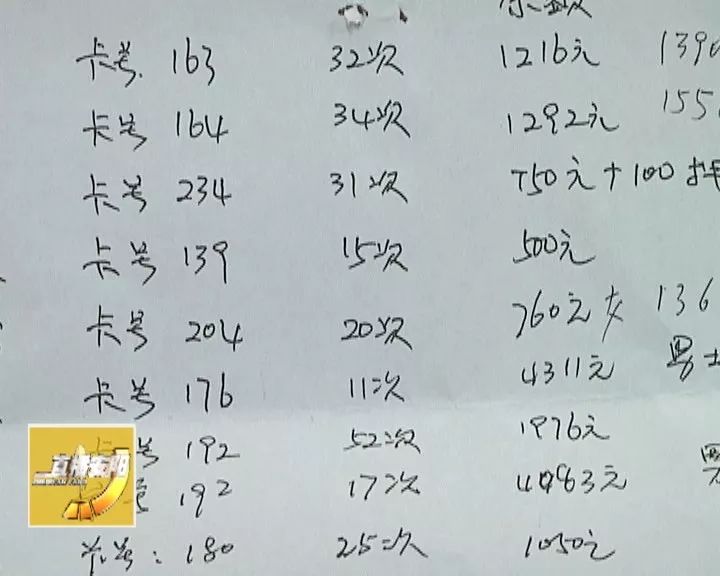 余额
卡号 163 32次 1216元 1390
卡号 164 34次 1292元 155
卡号 234 31次 750元+100
卡号 139 15次 500元
卡号 204 20次 760元 女 136
卡号 176 11次 4311元 男士
号 192 52次 1976元
直播
号 192 17次 4983元 男
卡号:180 25次 1050元